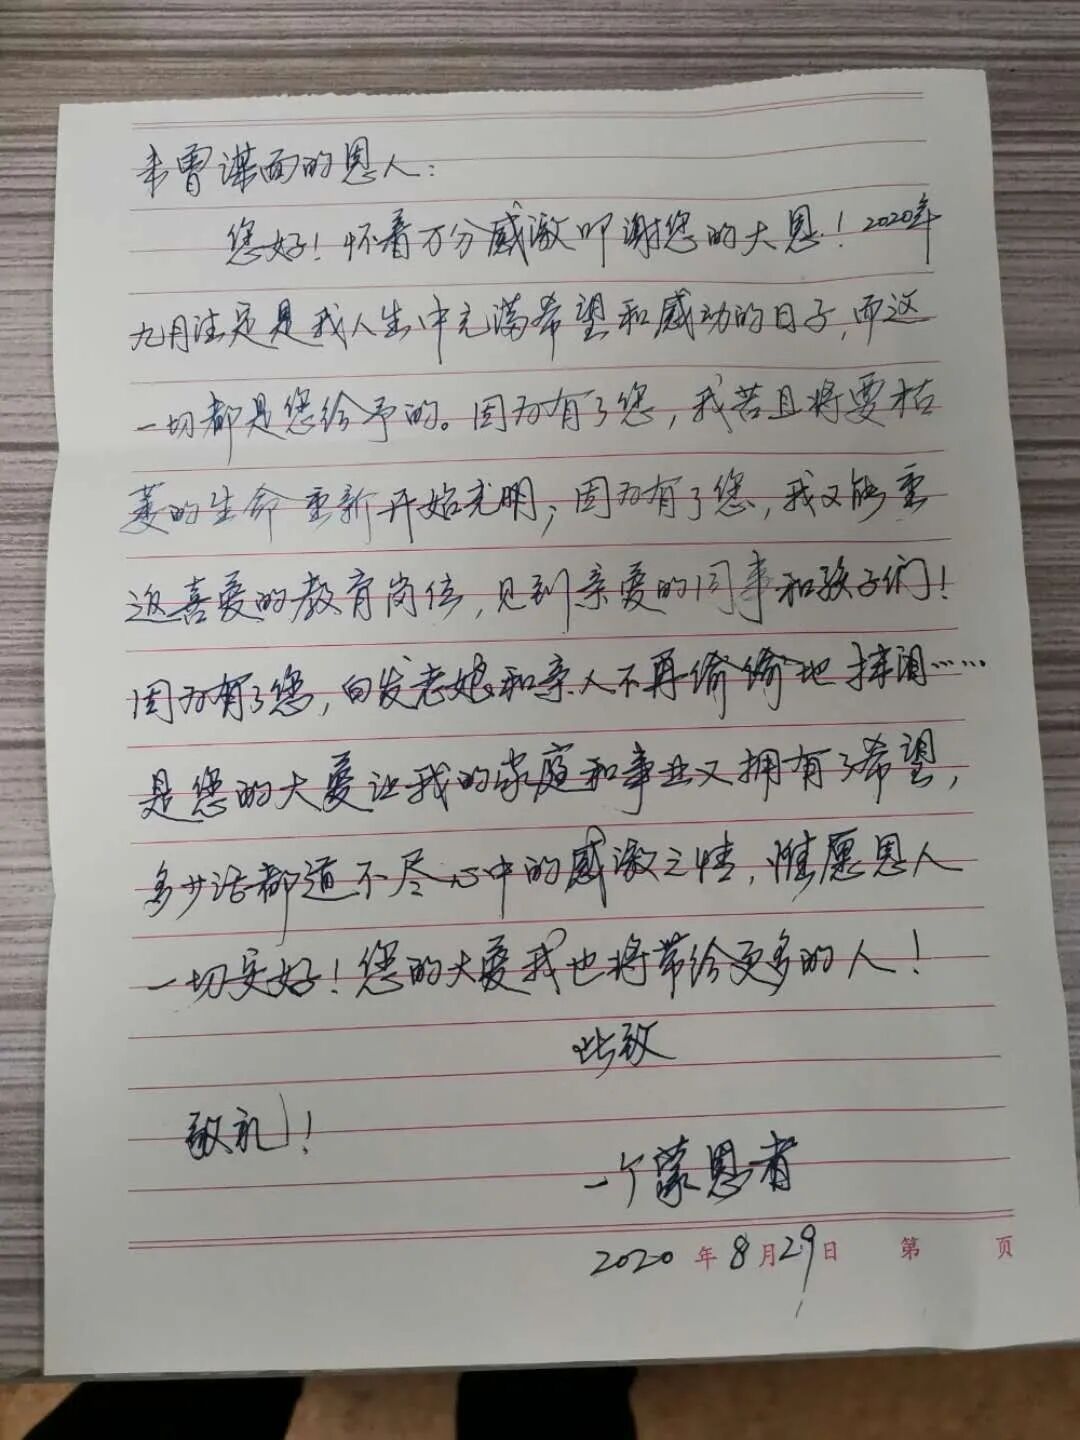 未曾谋面的恩人：
您好！怀着万分感激叩谢您的大恩！2020年
九月注定是我人生中充满希望和感动的日子，而这
一切都是您给予的。因为有了您，我苦且将要枯
萎的生命重新开始光明；因为有了您，我又能重
返喜爱的教育岗位，见到亲爱的同事和孩子们！
因为有了您，白发老娘和亲人不再偷偷地抹泪……
是您的大爱让我的家庭和事业又拥有了希望，
多少话都道不尽心中的感激之情，惟愿恩人
一切安好！您的大爱我也将带给更多的人！
此致
敬礼！
一个蒙恩者
2020年8月29日 第 页